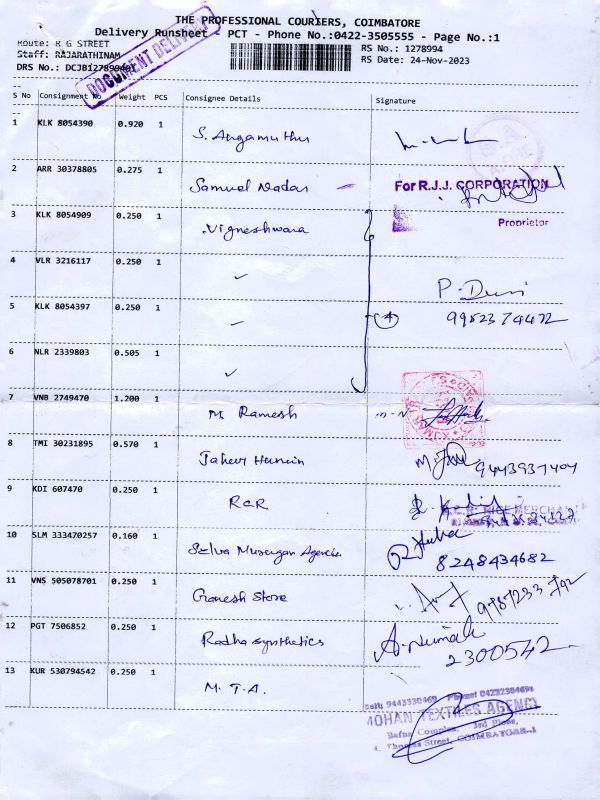 THE PROFESSIONAL COURIERS, COIMBATORE
Delivery Runsheet - PCT - Phone No.:0422-3505555 - Page No.:1
Route: R G STREET
Staff: RAJARATHINAM
RS No.: 1278994
RS Date: 24-Nov-2023
DRS No.:
DOCUMENT DELIVERY
S No Consignment No Weight PCS Consignee Details Signature
1 KLK 8054390 0.920 1 S. Angamuthu
2 ARR 30378805 0.275 1 Samuel Nadar
For R.J.J. CORPORATION
Proprietor
3 KLK 8054909 0.250 1 Vigneshwara
4 VLR 3216117 0.250 1 ✓
P. Devi
5 KLK 8054397 0.250 1 ✓ 4 9952374472
6 NLR 2339803 0.505 1 ✓
7 VNB 2749470 1.200 1 M Ramesh
8 TMI 30231895 0.570 1 Jaheer Hussain 9443937404
9 KDI 607470 0.250 1 RCR
RICE MERCHANT
10 SLM 333470257 0.160 1 Selva Murugan Agencies 8248434682
11 VNS 505078701 0.250 1 Ganesh Store
12 PGT 7506852 0.250 1 Radha synthetics A. Nirmala
2300542
13 KUR 530794542 0.250 1 M. T. A.
Cell: 9443330469 Phone: 04222304691
MOHAN TEXTILES AGENCY
Complex, 3rd Floor,
Thomas Street, COIMBATORE-1